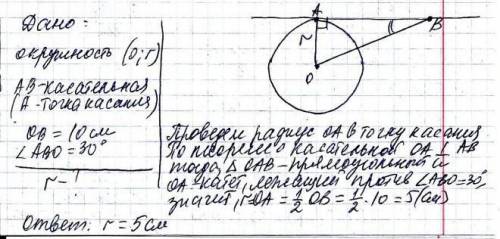 Дано:
окружность (O; r)
AB-касательная
(A-точка касания)
OB = 10 см
∠ABO = 30°
r - ?
A
B
r
O
Проведем радиус OA в точку касания
По теореме о касательной OA ⊥ AB
тогда, △ OAB - прямоугольный и
OA-катет, лежащий против ∠ABO=30°,
значит, r=OA = 1/2 OB = 1/2 · 10 = 5 (см)
Ответ: r = 5 см